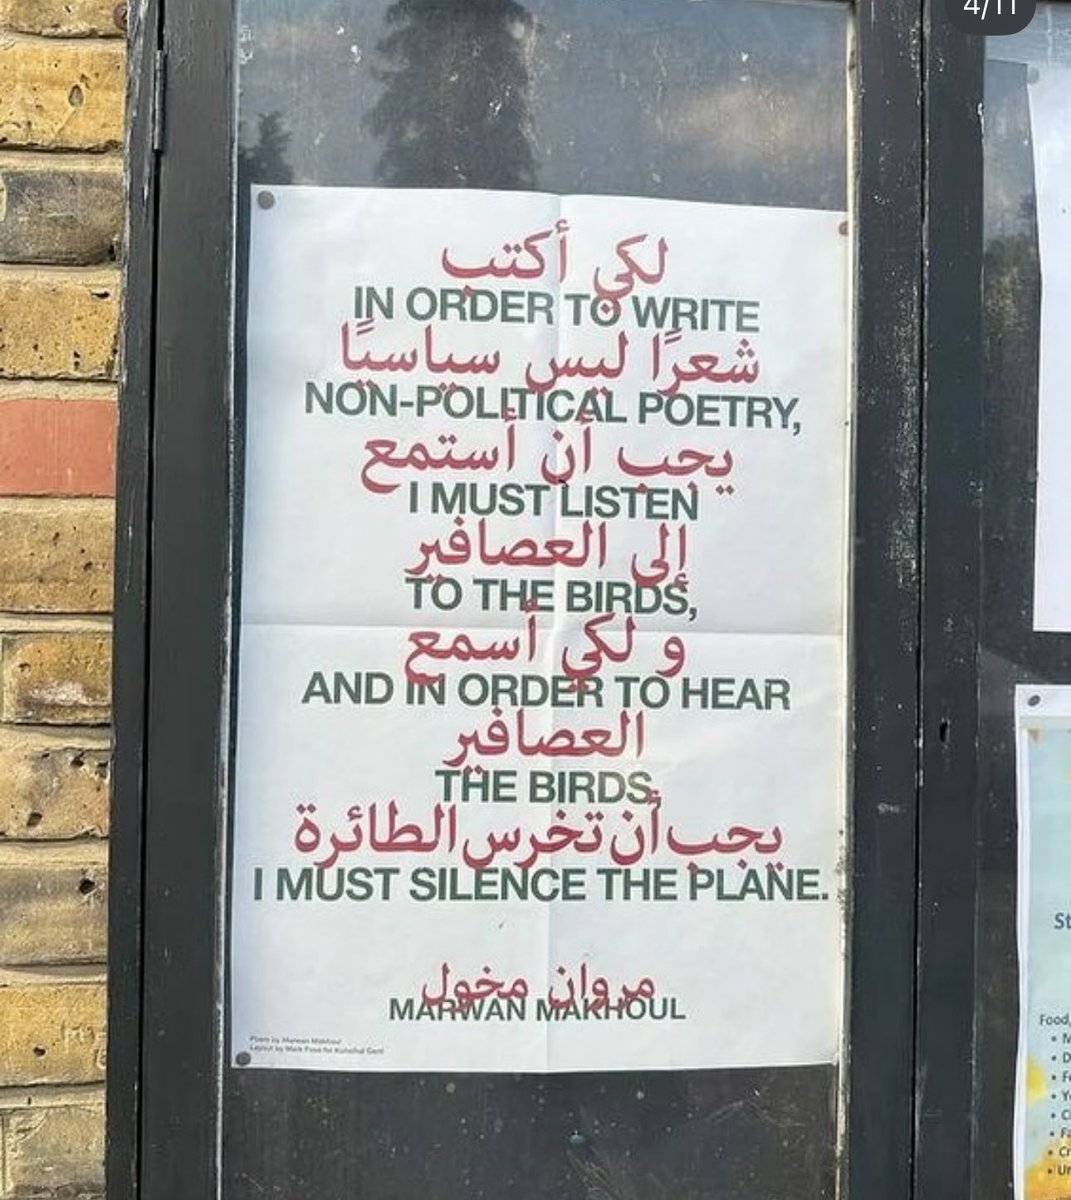 4/11
لكي أكتب
IN ORDER TO WRITE
شعرًا ليس سياسيًا
NON-POLITICAL POETRY,
يجب أن أستمع
I MUST LISTEN
إلى العصافير
TO THE BIRDS,
و لكي أسمع
AND IN ORDER TO HEAR
العصافير
THE BIRDS
يجب أن تخرس الطائرة
I MUST SILENCE THE PLANE.
مروان مخول
MARWAN MAKHOUL
Poem by Marwan Makhoul
Layout by Mark Foss for Kunsthal Gent
St
Food,
• M
• D
• Fe
• Yo
• Cl
• Fa
• Cr
• Un